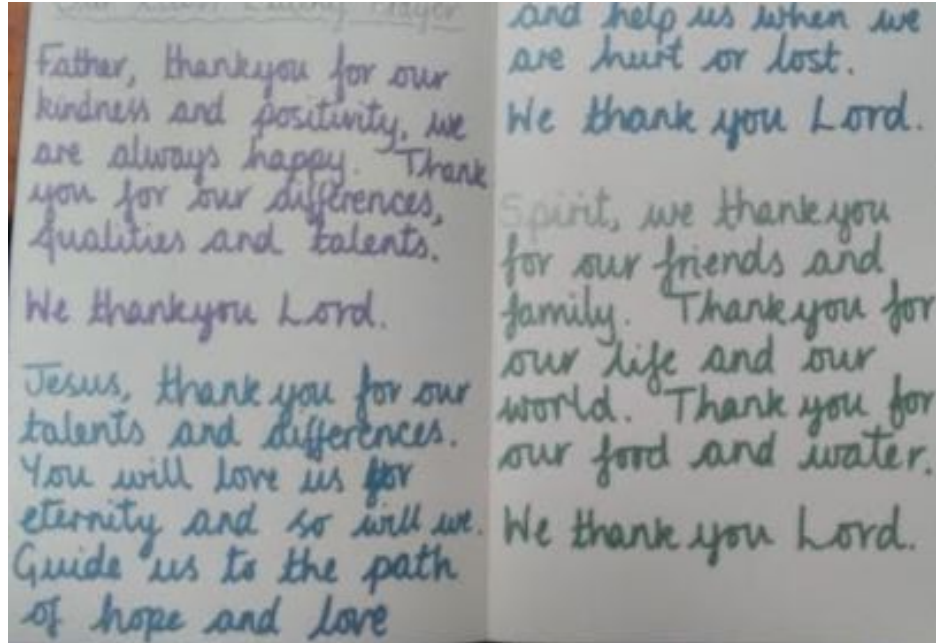 Our Class Litany Prayer
Father, thankyou for our
kindness and positivity, we
are always happy. Thank
you for our differences,
qualities and talents.
We thankyou Lord.
Jesus, thank you for our
talents and differences.
You will love us for
eternity and so will we.
Guide us to the path
of hope and love
and help us when we
are hurt or lost.
We thank you Lord.
Spirit, we thank you
for our friends and
family. Thank you for
our life and our
world. Thank you for
our food and water.
We thank you Lord.